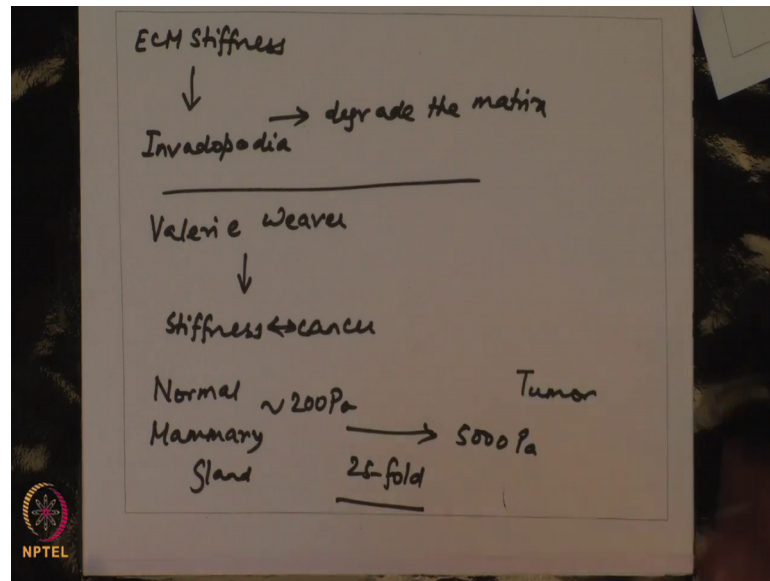 ECM Stiffness
↓
Invadopodia → degrade the matrix
Valerie Weaver
↓
Stiffness ↔ cancer
Normal ~200Pa Tumor
Mammary → 5000 Pa
Gland 25-fold
NPTEL